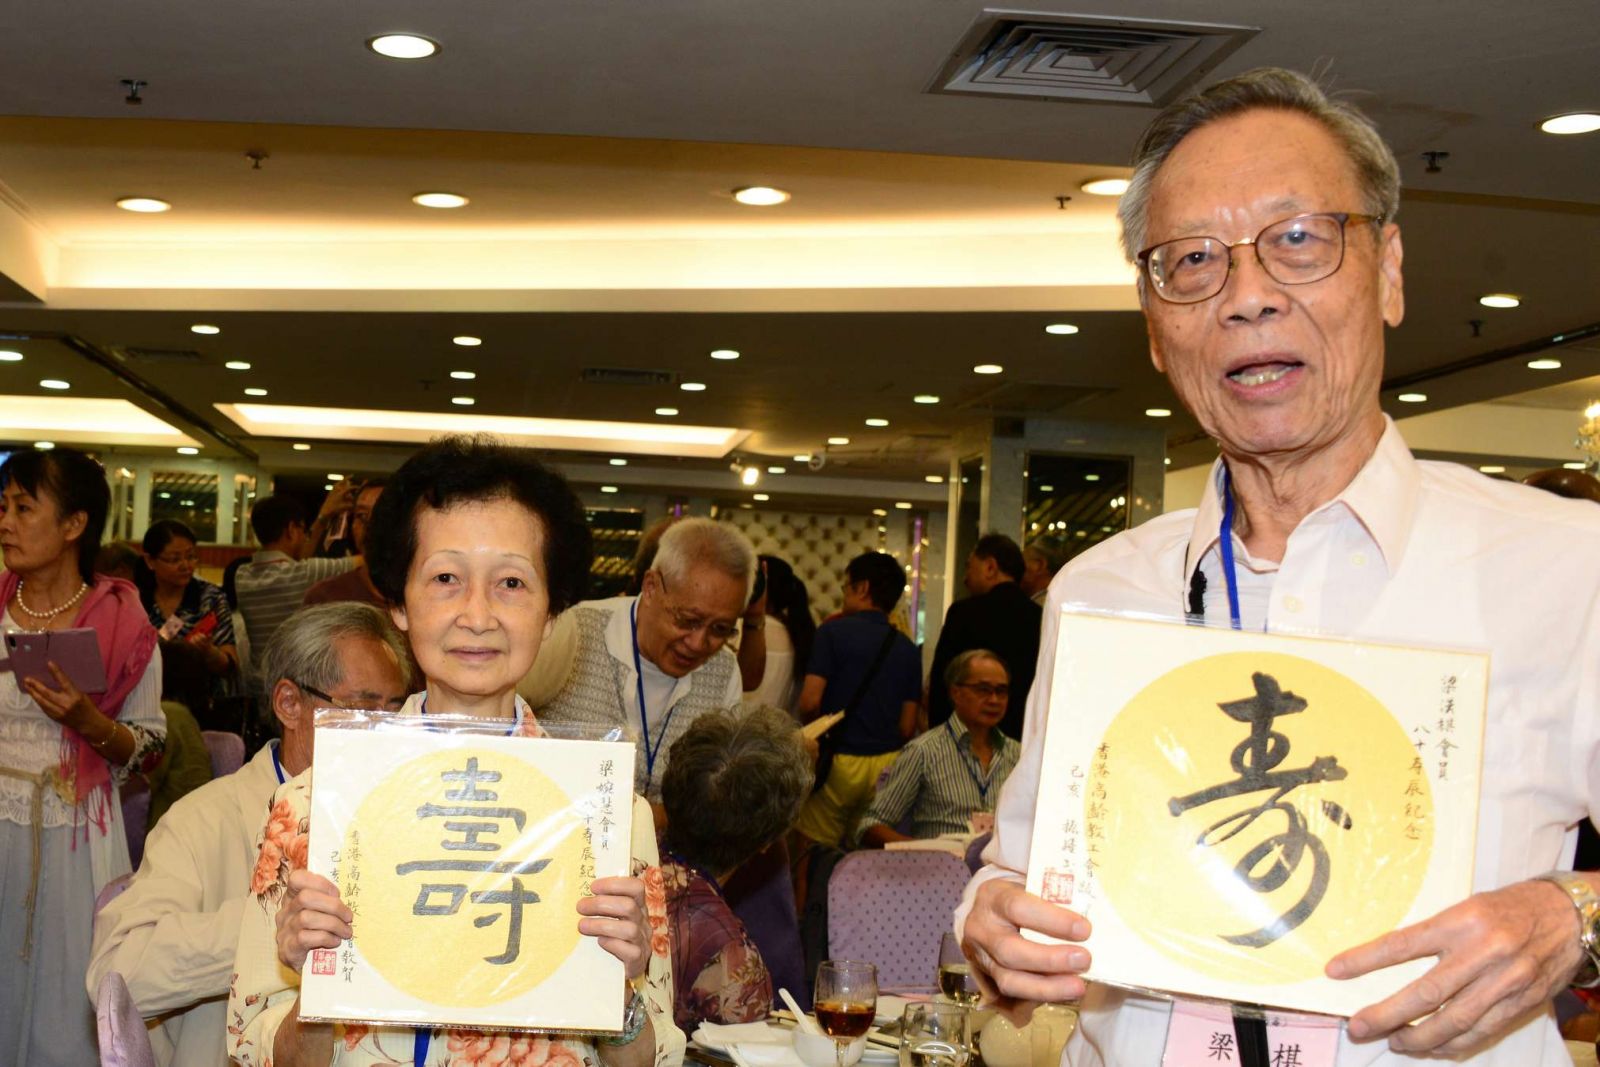 壽
梁婉慧會員
八十壽辰紀念
香港高齡教工會敬賀
己亥
寿
梁漢棋會員
八十寿辰紀念
香港高齡教工會敬賀
己亥
梁 棋